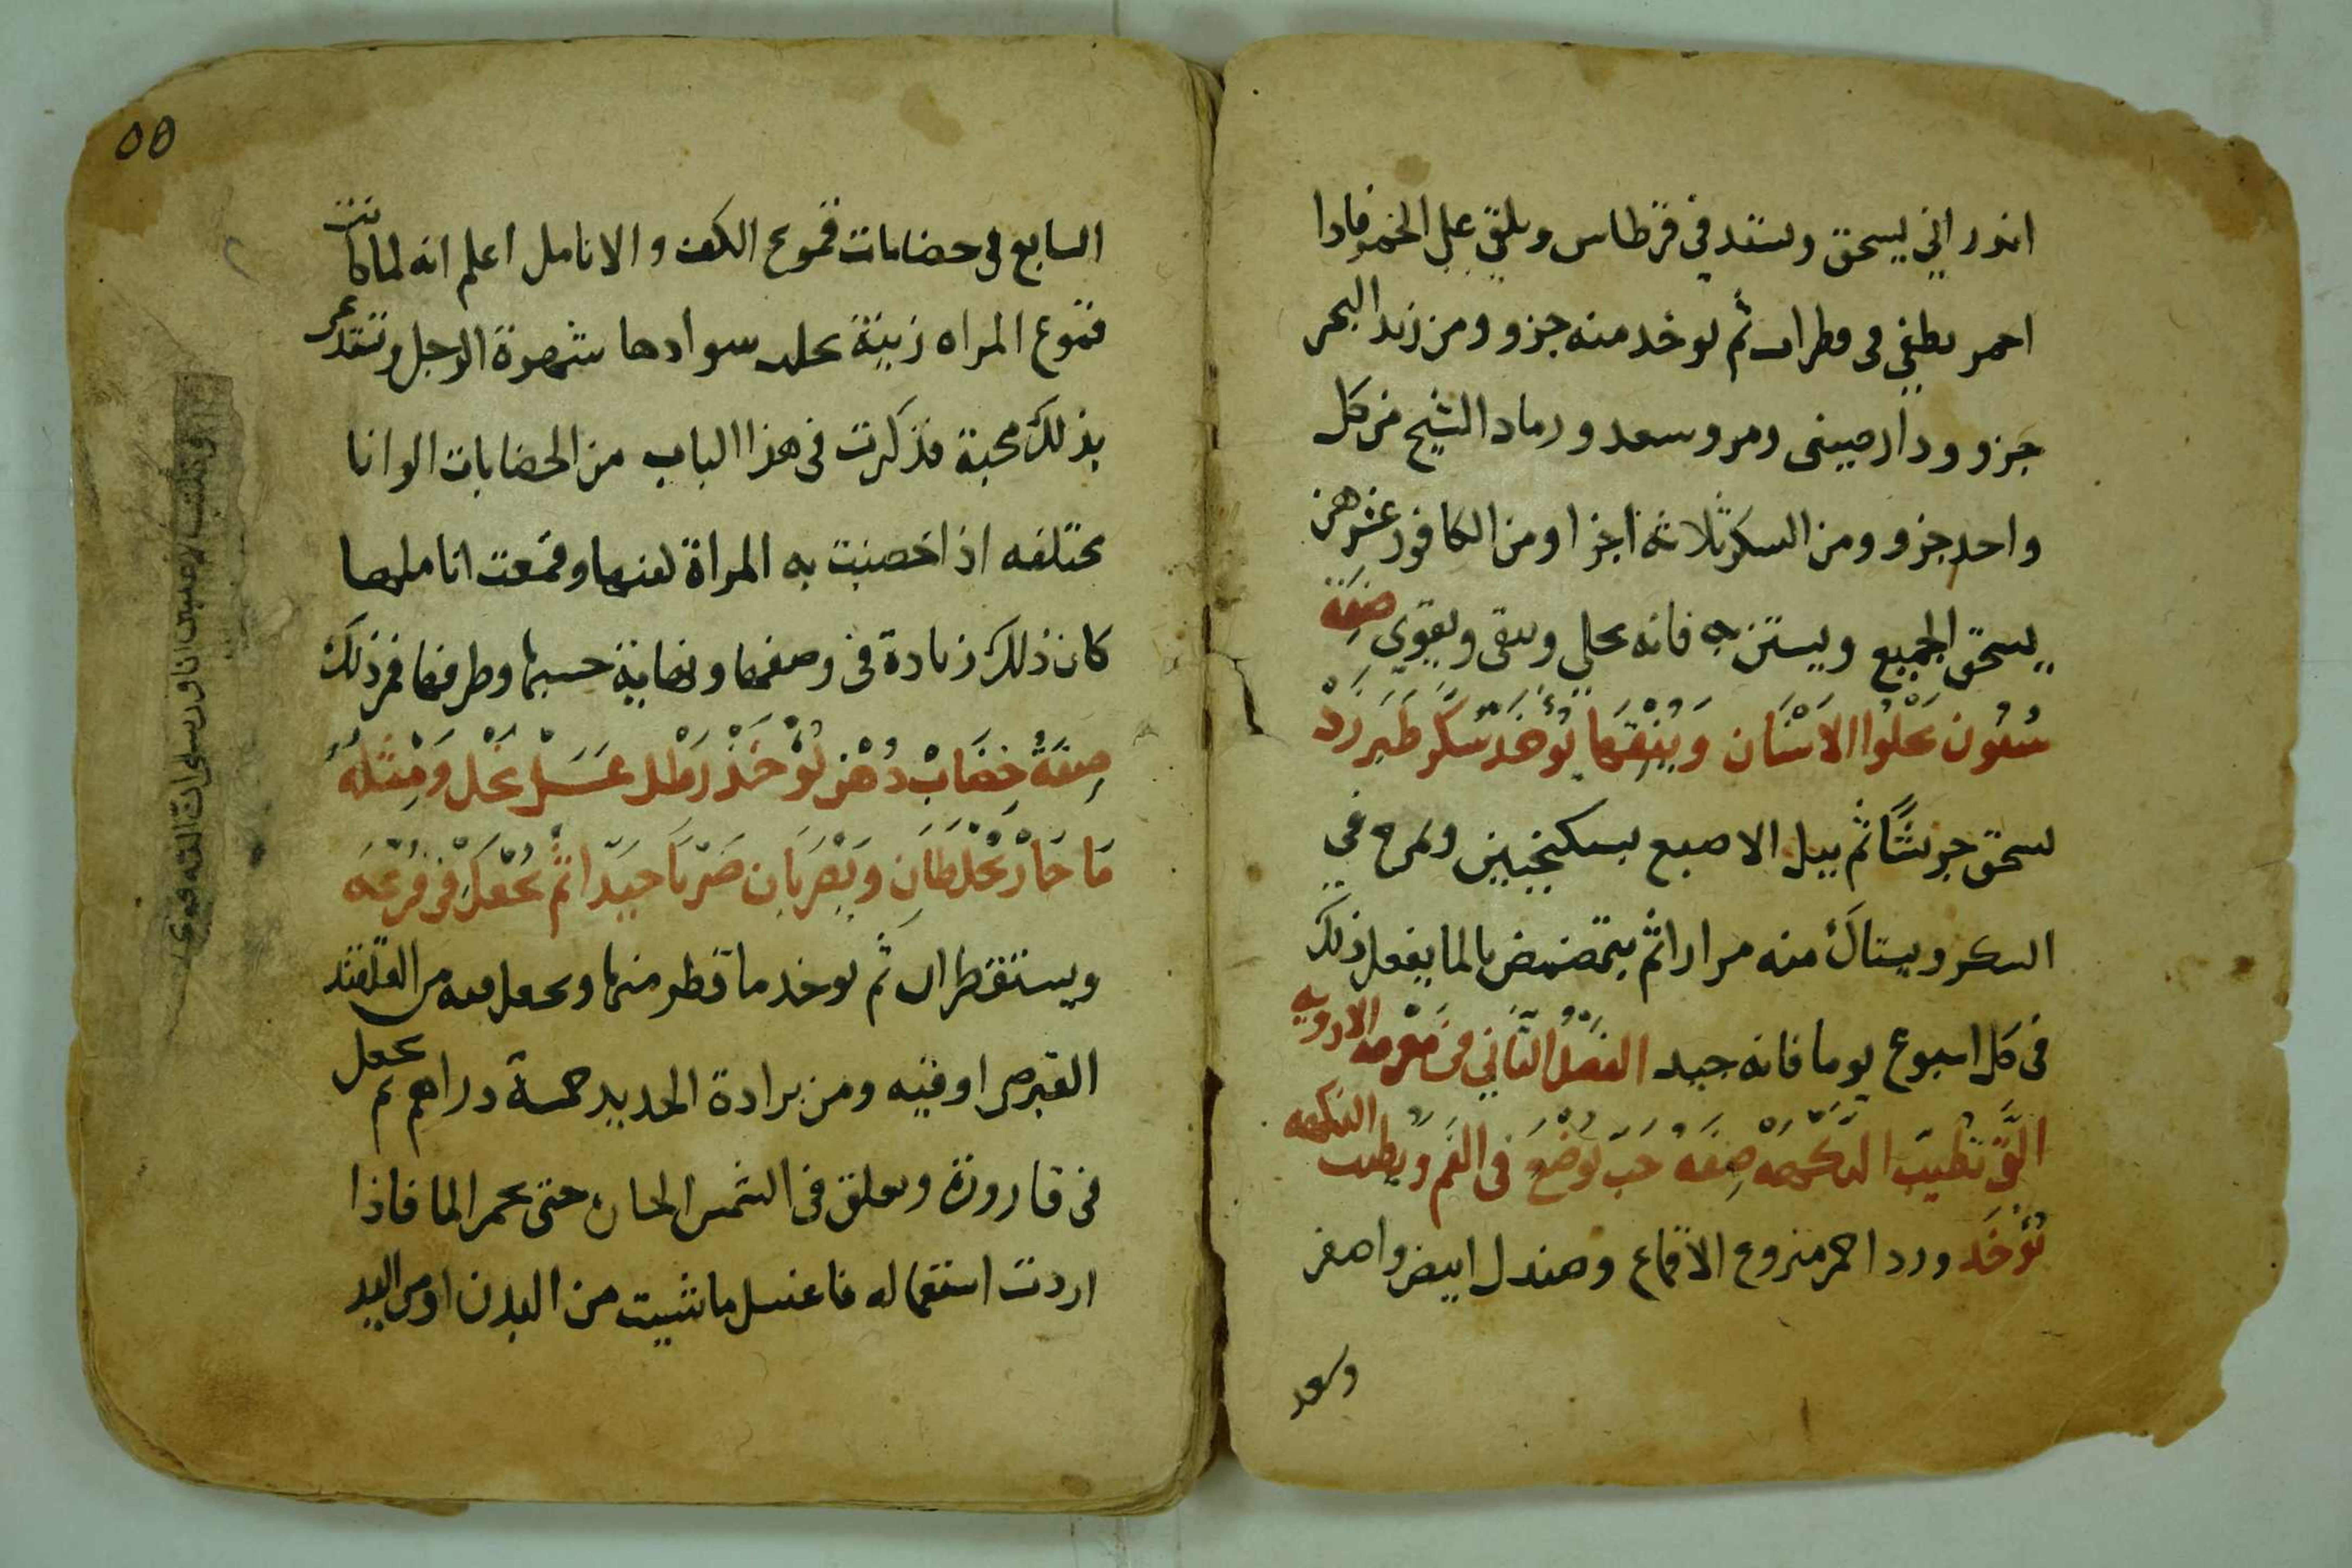 اندراني يسحق ويشد في قرطاس ويلقي علي الجمر فاذا
احمر يطفي في قطران ثم يوخد منه جزو ومن زبد البحر
جزو ودارصيني ومر وسعد ورماد الشيح من كل
واحد جزو ومن السكر ثلاثة اجزا ومن الكافور عشر
يسحق الجميع ويستن به فانه يجلي وينقي ويقوي صفة
سنون يجلوا الاسنان وينقيها يؤخد سكر طبرزد
يسحق جريشا ثم يبل الاصبع بسكنجبين ويمرح في
السكر ويستاك منه مرارا ثم يتمضمض بالما يفعل ذلك
في كل اسبوع يوما فانه جيد الفصل الثاني في معرفة الادويه
التي تطيب النكهه صفه حب يوضع في الفم ويطيب النكهه
يؤخد ورد احمر منزوع الاقماع وصندل ابيض واصفر
وسعد
٥٥
السابع في خضابات قموع الكف والانامل اعلم انه لما كانت
قموع المراه زينة سوادها شهوة الرجل
بذلك محبة فذكرت في هذا الباب من الخضابات الوانا
مختلفه اذا خضبت به المراة كفها وقمعت اناملها
كان ذلك زيادة في وصفها ونهاية حسنها وطرفها فمن ذلك
صفة خضاب دهن يؤخذ رطل عسل نحل ومثله
ما حار يخلطان ويضربان ضربا جيدا ثم يجعل في قرعه
ويستقطران ثم يوخد ما قطر منها ويجعل فيه من القلقند
القبرصي اوقيه ومن برادة الحديد خمسة دراهم ثم يجعل
في قارورة ويعلق في الشمس الحار حتي يحمر الما فاذا
اردت استعماله فاغسل ما شيت من البدن او من اليد